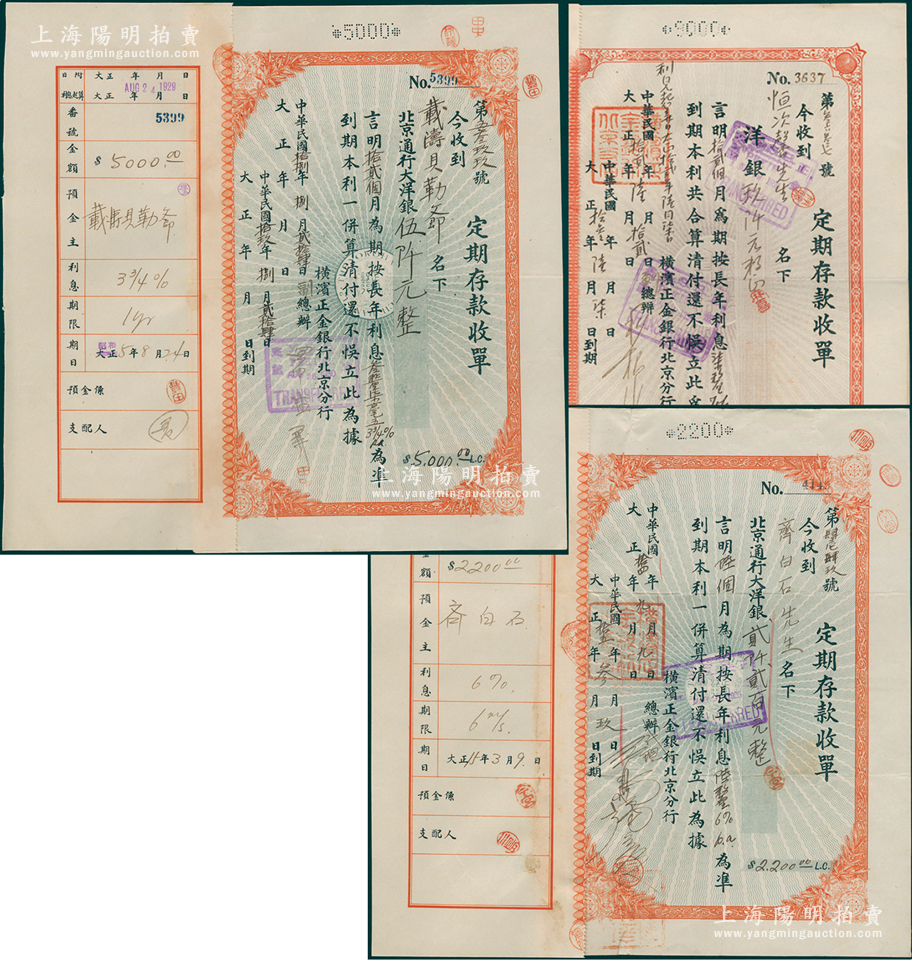 上海陽明拍賣
www.yangmingauction.com
日附 大正 年 月 日
大正 年 月 日
AUG 24 1929
番號 5399
金額 $5000.00
預金主 載濤貝勒爺
利息 3¾%
期限 1yr
期日 大正 昭和 5年8月24日
預金係
支配人
5000
No. 5399
定期存款收單
今收到
載濤貝勒爺 名下
北京通行大洋銀伍仟元整
言明拾貳個月為期按長年利息
3¾%
為準
到期本利一併算清付還不悞立此為據
橫濱正金銀行北京分行
總辦
中華民國拾捌年捌月貳拾肆日
大正 年 月 日
中華民國拾玖年捌月貳拾肆日到期
大正
TRANSFERRED
$5.000.00 L.C.
9000
No. 3637
定期存款收單
今收到
恒次超先生 名下
洋銀玖仟元
言明拾貳個月為期按長年利息
到期本利共合算清付還不悞立此為
橫濱正金銀行北京分行
總辦
中華民國拾貳年陸月
大正拾貳年陸月拾貳日
中華民國 年 月 日
大正拾 年陸月柒日到期
2200
No. 4149
第 號
定期存款收單
今收到
齊白石先生 名下
北京通行大洋銀貳仟貳百元整
言明陸個月為期按長年利息
6% p.a.
為準
到期本利一併算清付還不悞立此為據
橫濱正金銀行北京分行
總辦
中華民國 年 月 日
大正拾肆年九月九日
中華民國 年
大正拾五年叁月玖日到期
$2.200.00 L.C.
額 $2200.00
預金主 齊白石
利息 6%
期限 6 m/s
期日 大正15年3月9日
預金係
支配人
上海陽明拍賣
www.yangmingauction.com
上海陽明拍賣
www.yangmingauction.com